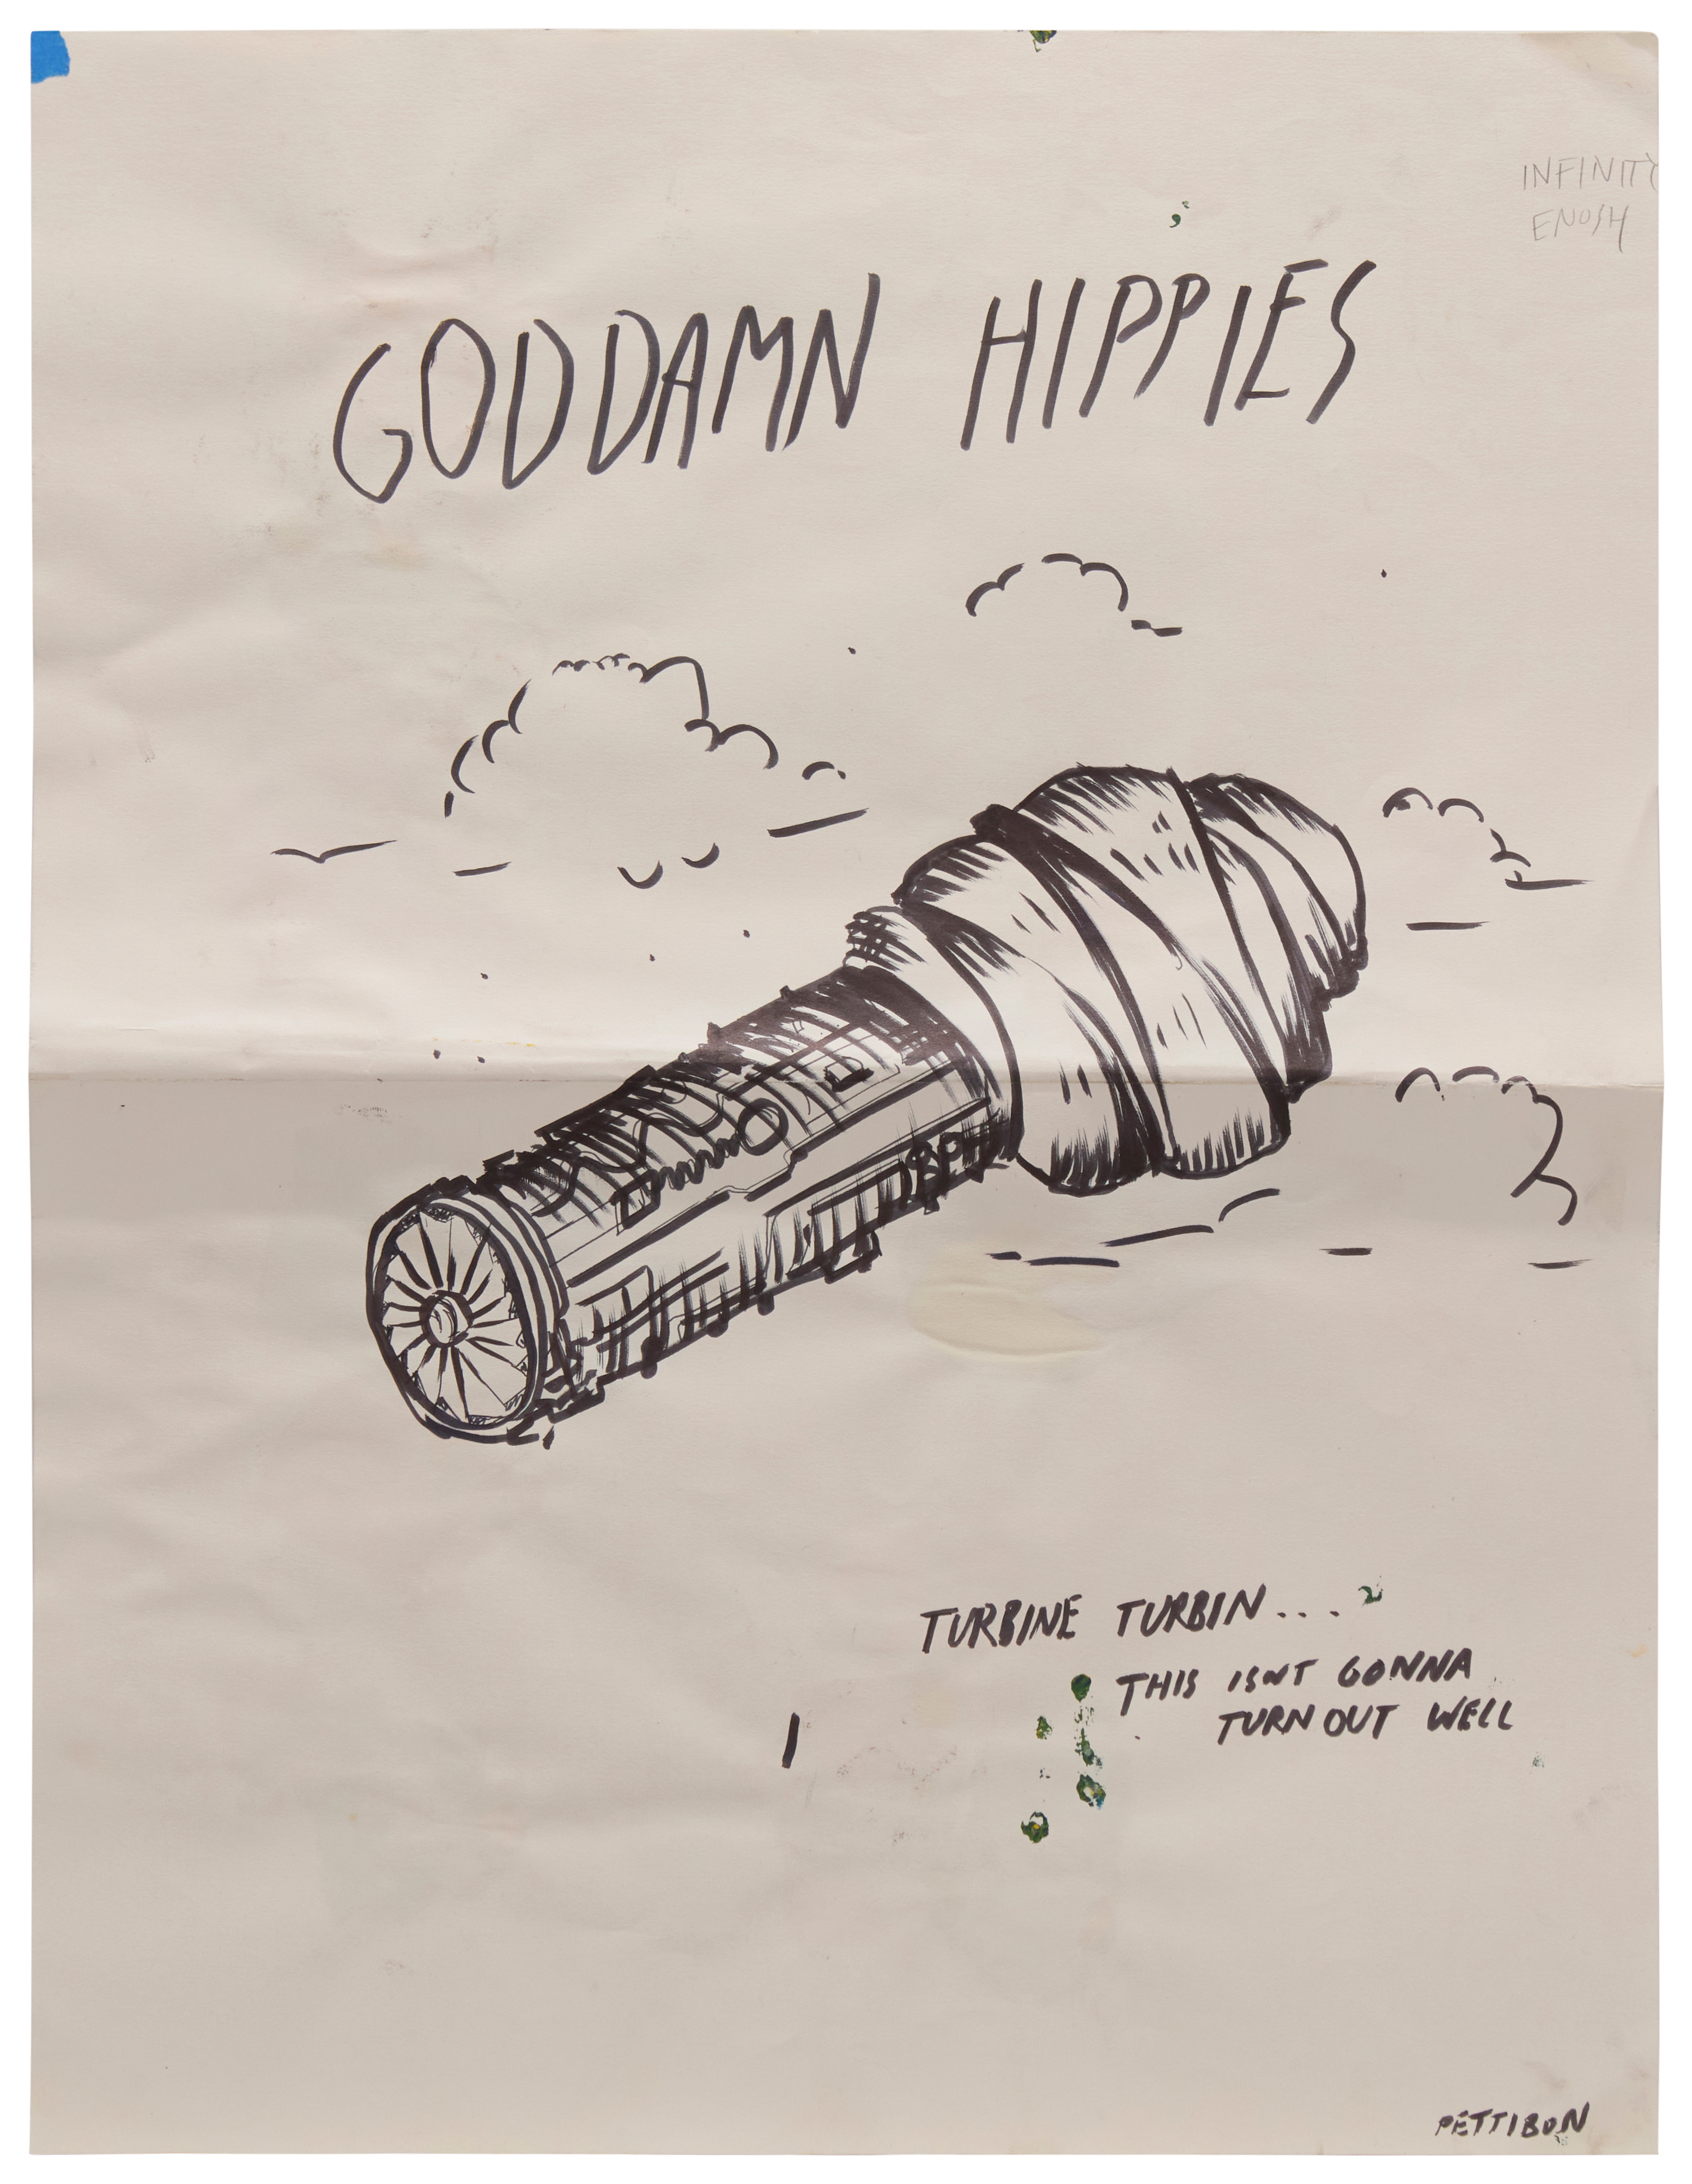 INFINITY
ENOSH
GODDAMN HIPPIES
TURBINE TURBIN...
THIS ISNT GONNA
TURN OUT WELL
PETTIBON